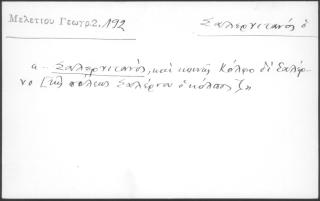 Μελετίου Γεωγρ. 2, 192
Σαλερνιτανός ὁ
α.. Σαλερνιτανός, καὶ κοινῶς Κόλφο δὶ Σαλέρ-
νο [τῆς πόλεως Σαλέρνου ὁ κόλπος]»